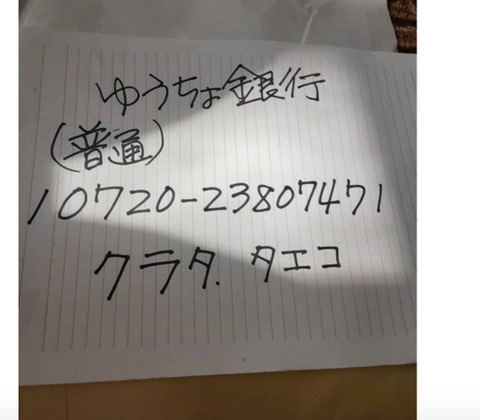 ゆうちょ銀行
(普通)
10720-23807471
クラタ. タエコ